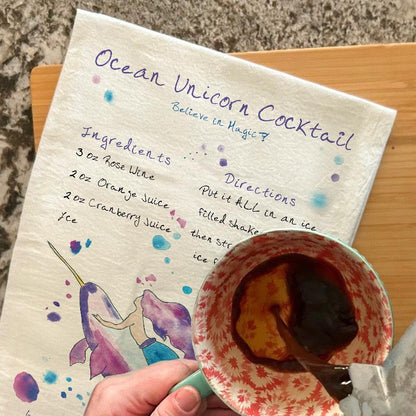 Ocean Unicorn Cocktail
Believe in Magic?
Ingredients
3 oz Rose Wine
2 oz Orange Juice
2 oz Cranberry Juice
Ice
Directions
Put it ALL in an ice
filled shake
then str
ice